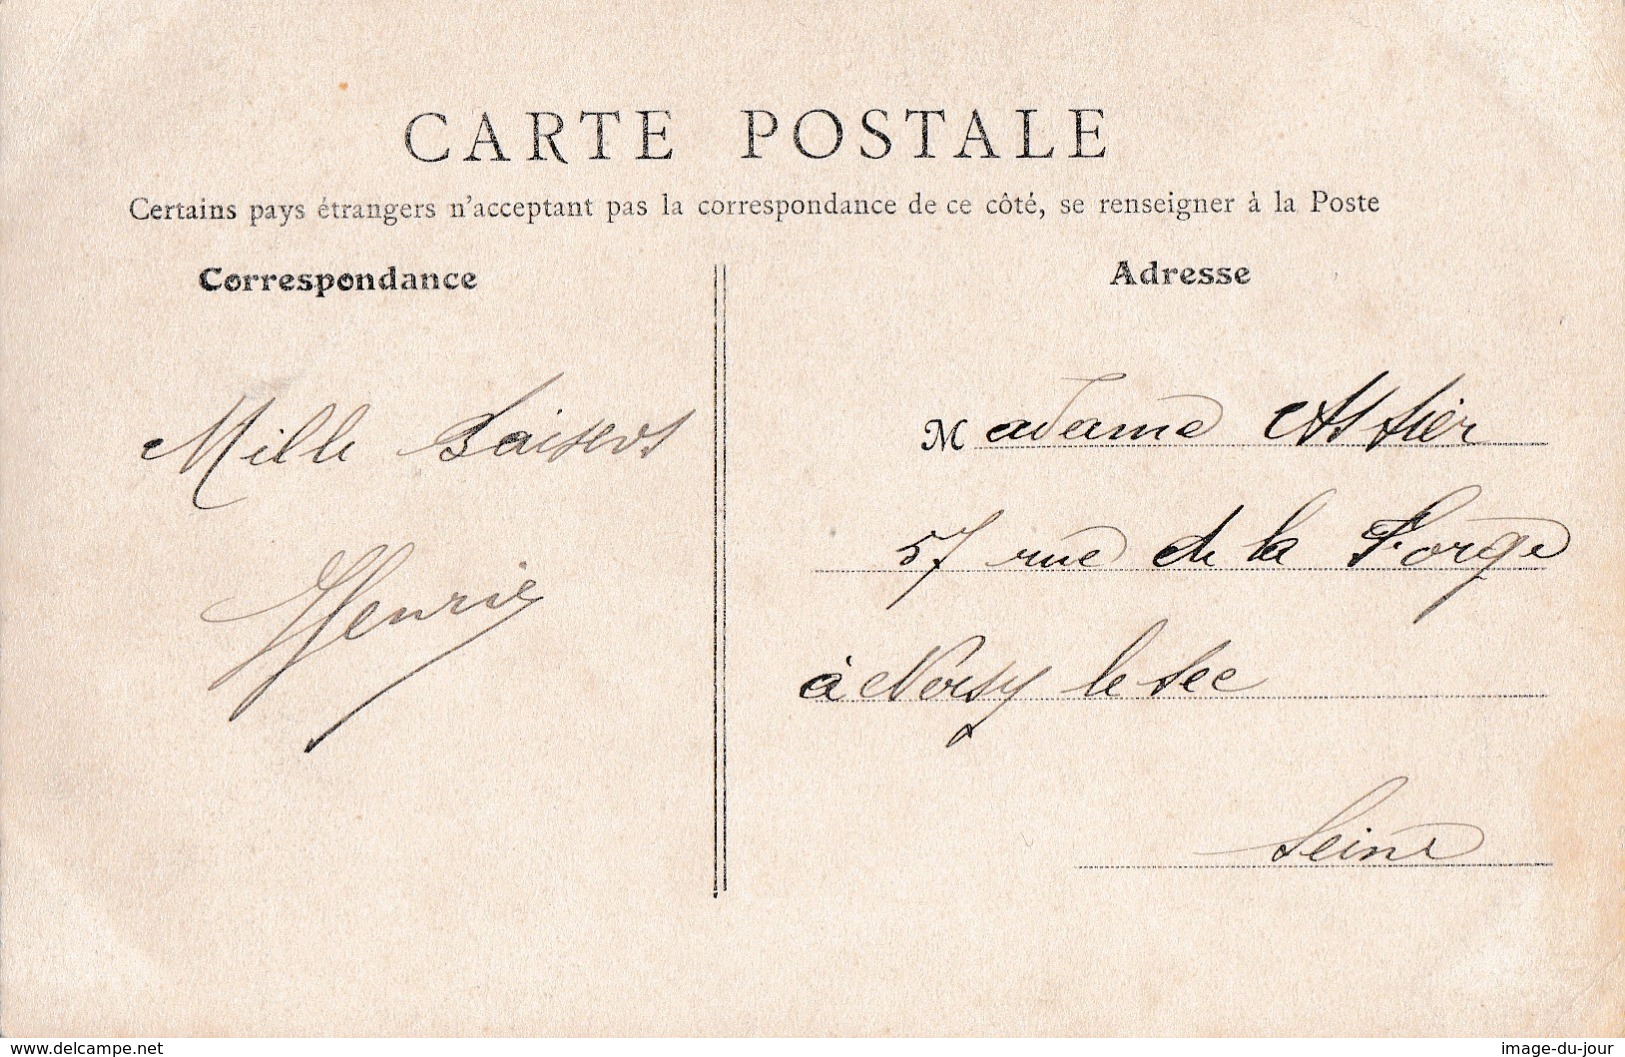 CARTE POSTALE
Certains pays étrangers n'acceptant pas la correspondance de ce côté, se renseigner à la Poste
Correspondance
Mille baisers
Henrie
Adresse
Madame Astier
57 rue de la Forge
à Noisy le sec
Seine
www.delcampe.net
image-du-jour